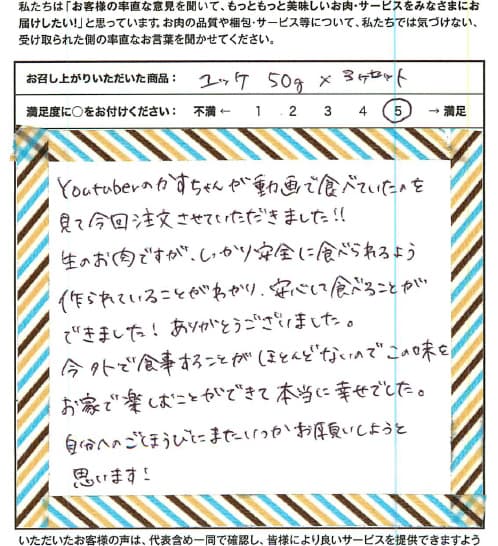 私たちは「お客様の率直な意見を聞いて、もっともっと美味しいお肉・サービスをみなさまにお
届けしたい!」と思っています。お肉の品質や梱包・サービス等について、私たちでは気づけない、
受け取られた側の率直なお言葉を聞かせてください。
お召し上がりいただいた商品: ユッケ 50g × 3ヶセット
満足度に○をお付けください: 不満 ← 1 2 3 4 5 → 満足
Youtuberのかすちゃんが動画で食べていたのを
見て今回注文させていただきました!!
生のお肉ですが、しっかり安全に食べられるよう
作られていることがわかり、安心して食べることが
できました! ありがとうございました。
今外で食事することがほとんどないのでこの味を
お家で楽しむことができて本当に幸せでした。
自分へのごほうびにまたいつかお願いしようと
思います!
いただいたお客様の声は、代表含め一同で確認し、皆様により良いサービスを提供できますよう